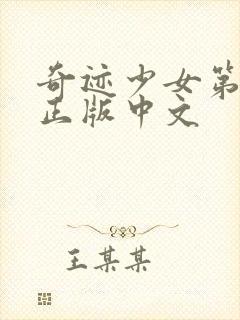 奇迹少女第
正版中文
王某某